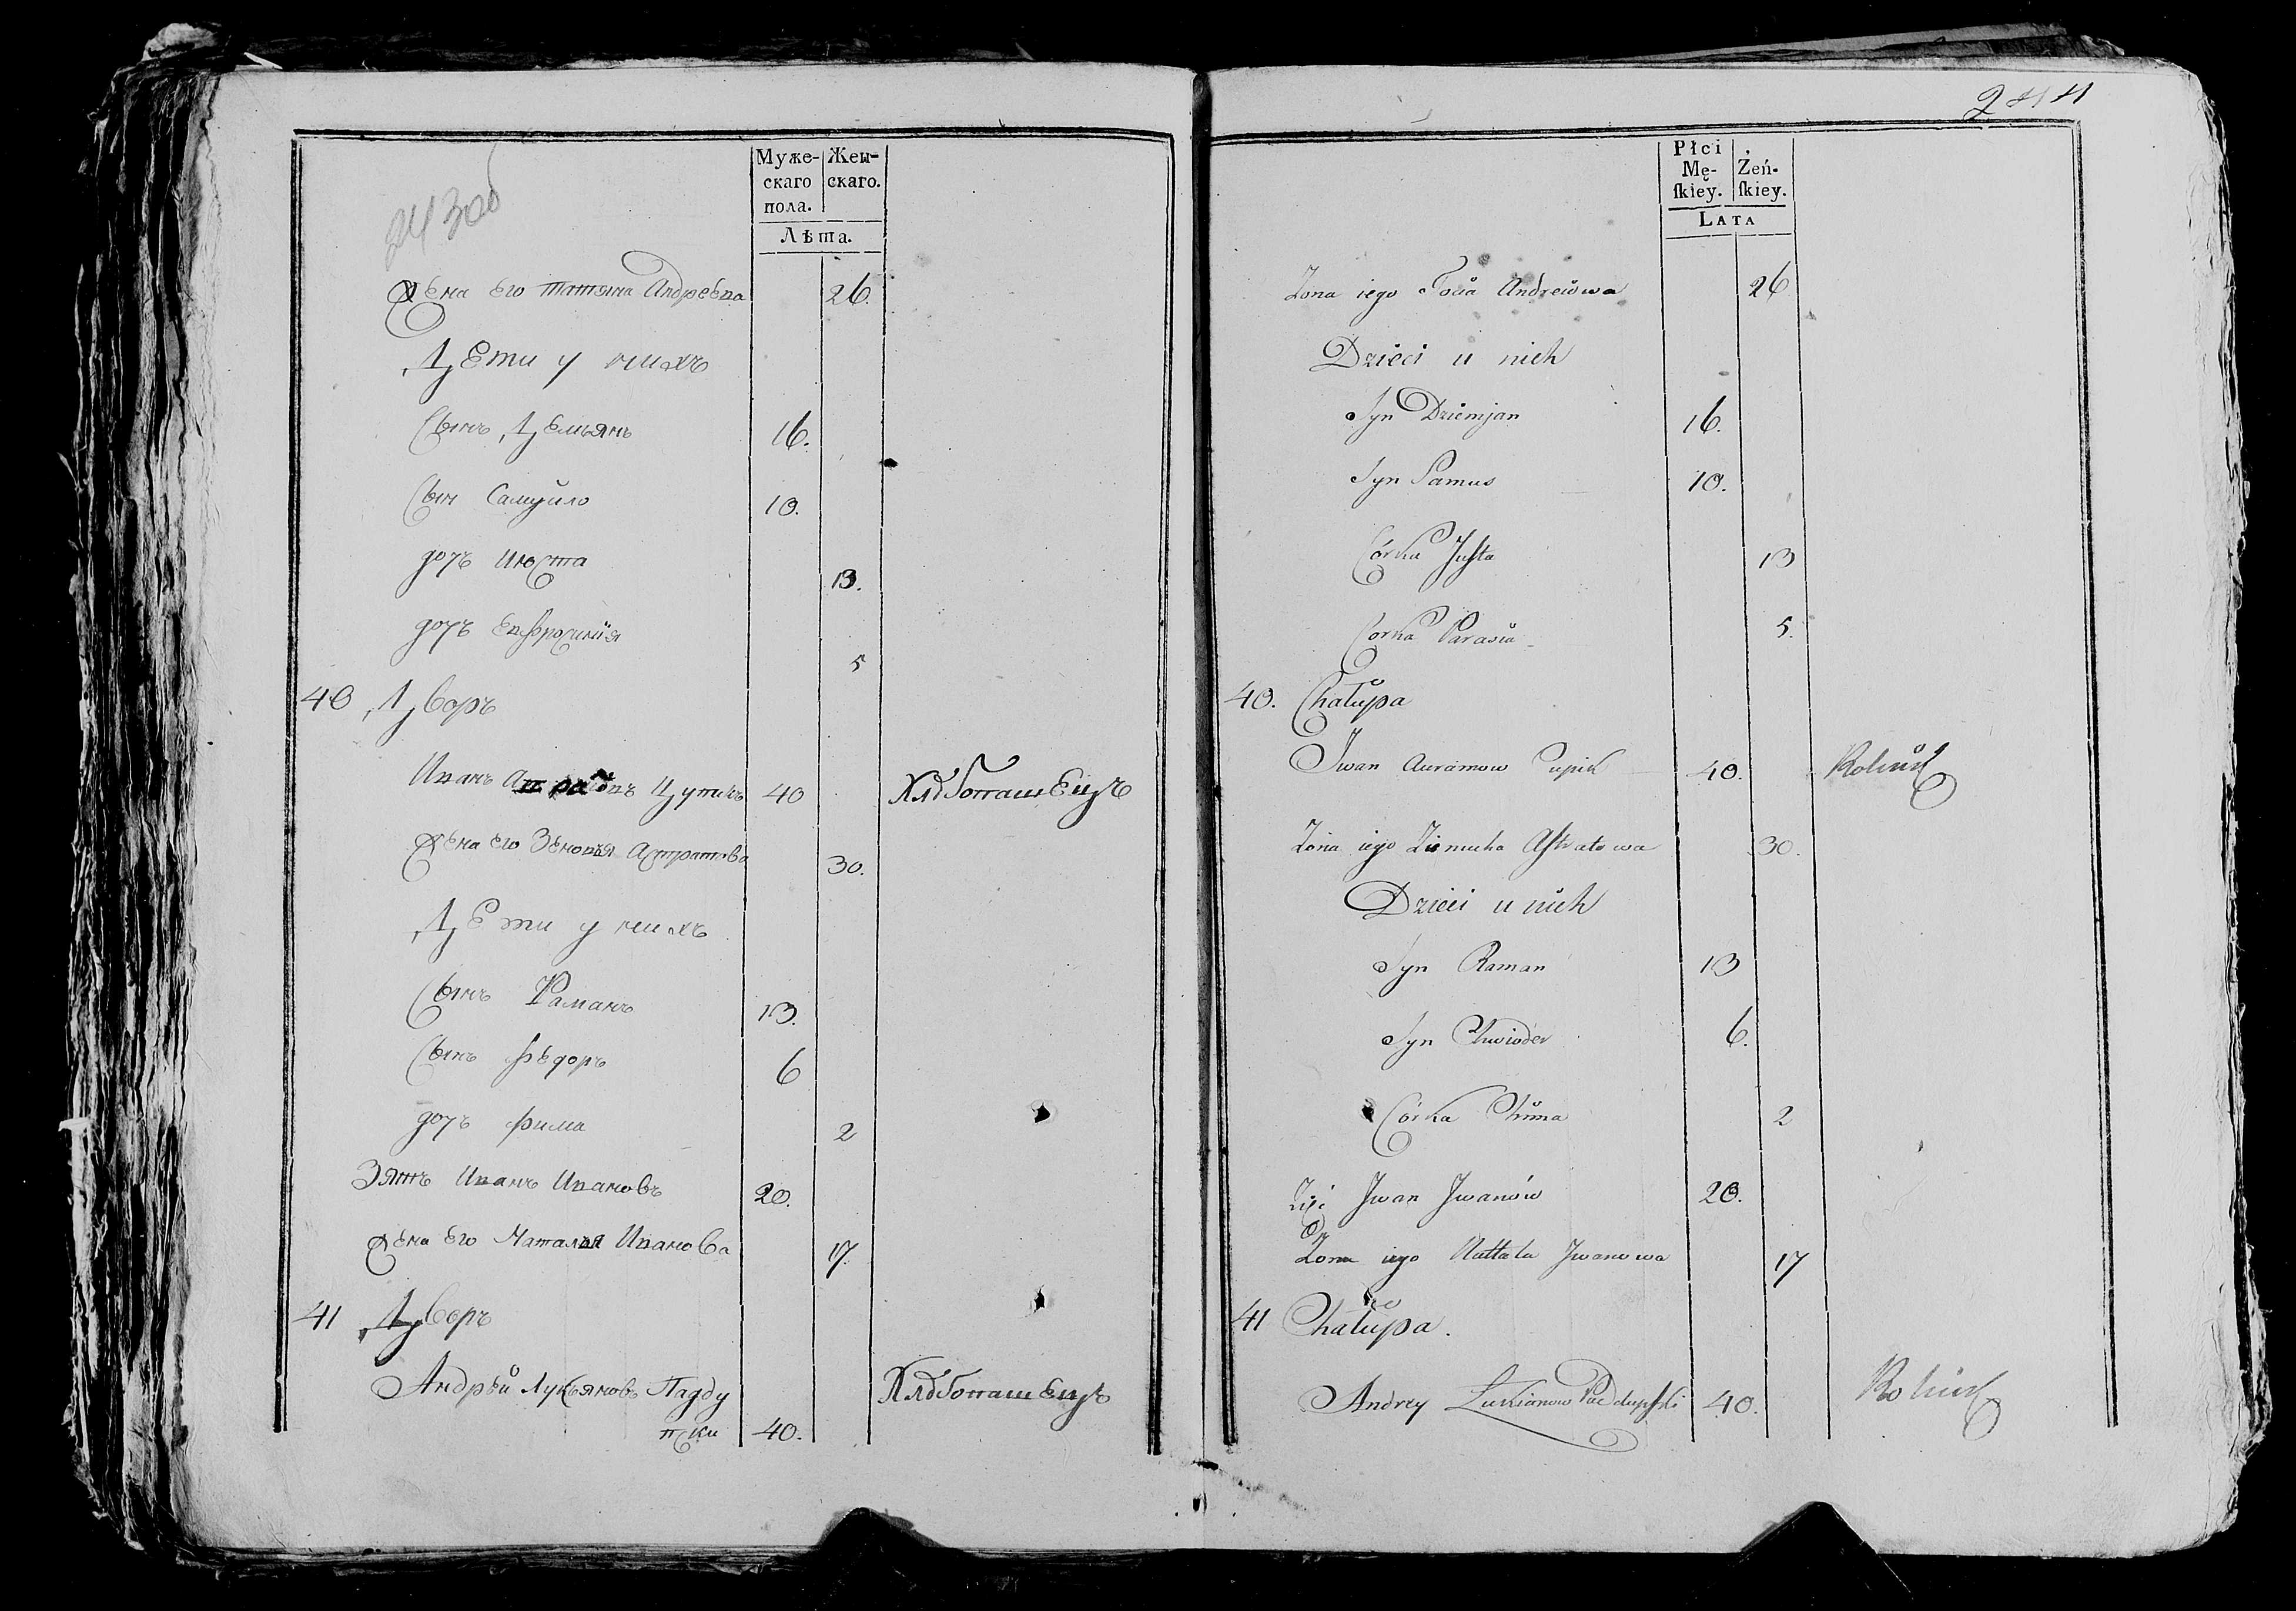 24300
Муже-
скаго
пола.
Жен-
скаго.
Лѣта.
Жена Его Татяна Андрѣева 26.
Дѣти у нихъ
Сынъ Демьянъ 16.
Сын Самуйло 10.
дочь Июста 13.
дочь Евфросинїя 5
40 Дворъ
Иванъ Цупикъ 40 Хлѣбопашецъ
Жена Его Зеновья Астратова 30.
Дѣти у нихъ
Сынъ Раманъ 13.
Сынъ Фѣдоръ 6
дочь Фима 2
Зять Иванъ Ивановъ 20.
Жена Его Наталья Иванова 17.
41 Дворъ
Андрѣй Лукьяновъ Падду Хлѣбопашецъ
пски 40.
2414
Płci
Mę-
ſkiey.
Żeń-
ſkiey.
Lata
Żona iego Andreiowa 26
Dzieci u nich
Syn Dziemjan 16.
Syn Samus 10.
Córka Justa 13
Corka Parasia 5.
40. Chałupa
Jwan Auramow Cupik 40. Rolnik
Żona iego Zinucha Astratowa 30.
Dzieci u nich
Syn Raman 13
Syn Chwioder 6.
Córka Chima 2
Zięć Jwan Jwanów 20.
Żona iego Nattala Jwanowa 17
41 Chałupa.
Andrey Łukianow Paddupski 40. Rolnik